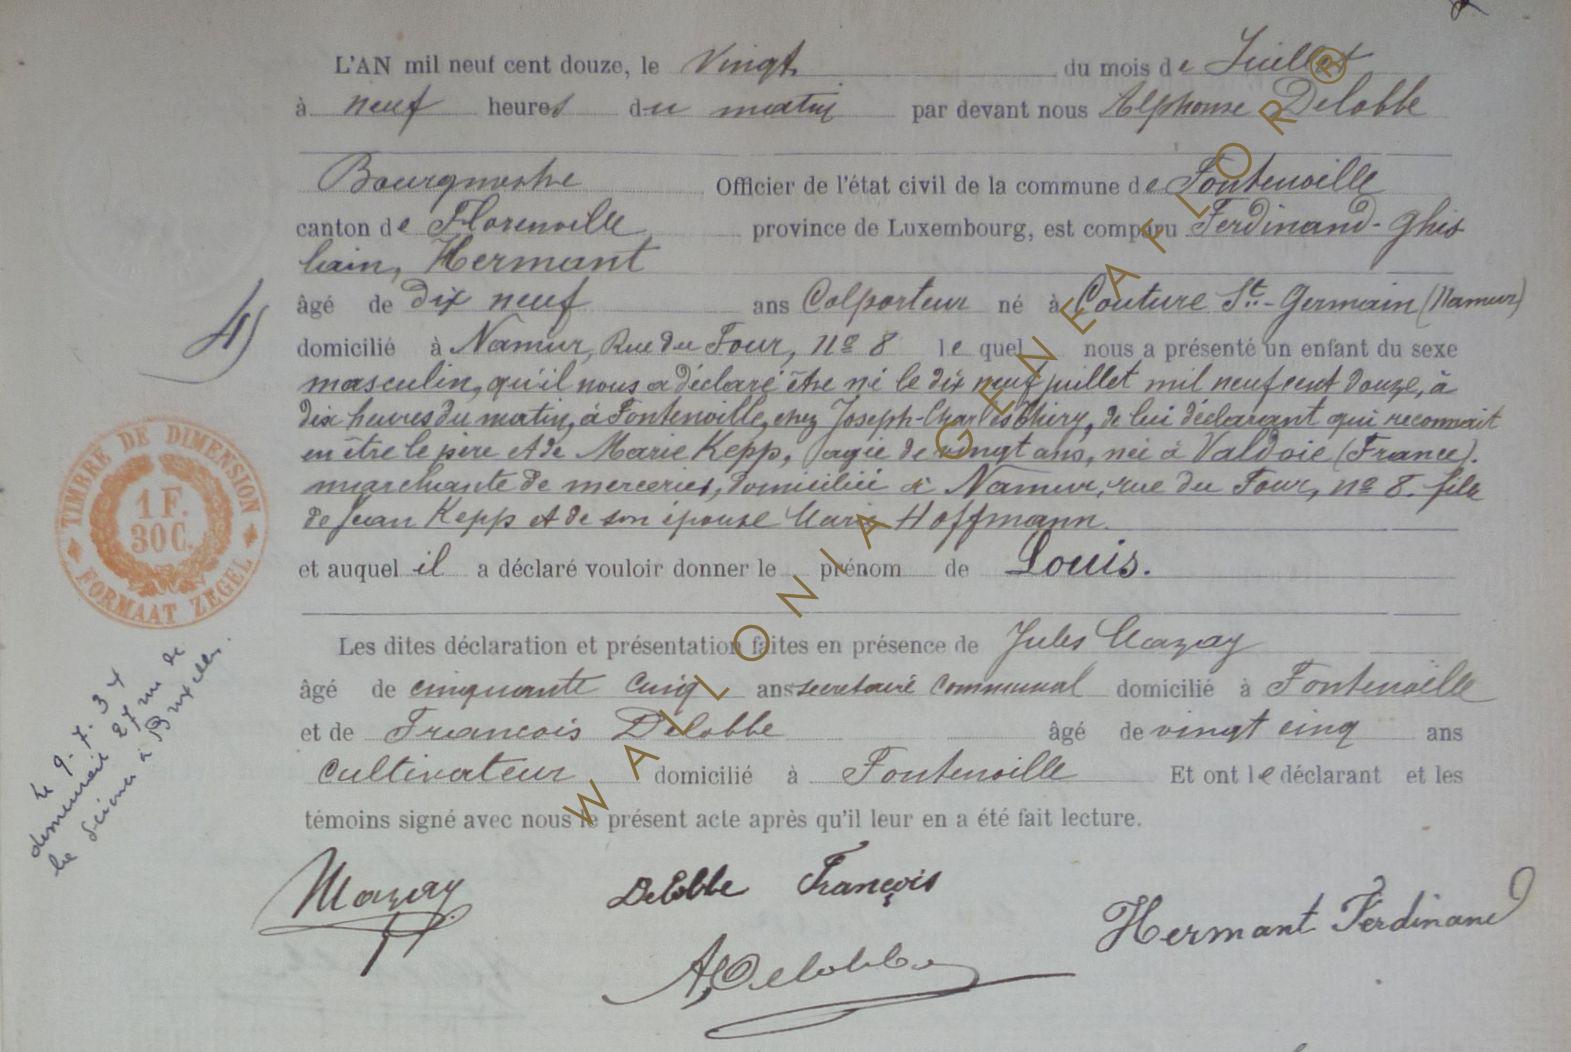 L'AN mil neuf cent douze, le Vingt du mois de Juillet
à neuf heures du matin par devant nous Alphonse Delobbe
Bourgmestre Officier de l'état civil de la commune de Fontenoille
canton de Florenville province de Luxembourg, est comparu Ferdinand-Ghis
lain, Hermant
âgé de dix neuf ans Colporteur né à Couture St.-Germain (Namur)
4)
domicilié à Namur, Rue du Four, No 8 lequel nous a présenté un enfant du sexe
masculin, qu'il nous a déclaré être né le dix neuf juillet mil neuf cent douze, à
dix heures du matin, à Fontenoille, chez Joseph-Charles Thiry, de lui déclarant qui reconnait
en être le père et de Marie Kepp, agée de vingt ans, née à Valdoie (France).
marchante de merceries, domiciliée à Namur, rue du Four, no 8. fille
de Jean Kepp et de son épouse Marie Hoffmann.
TIMBRE DE DIMENSION
1 F.
30 C.
FORMAAT ZEGEL
et auquel il a déclaré vouloir donner le prénom de Louis.
Les dites déclaration et présentation faites en présence de Jules Mazay
âgé de cinquante cinq ans secretaire communal domicilié à Fontenoille
et de Francois Delobbe âgé de vingt cinq ans
cultivateur domicilié à Fontenoille Et ont le déclarant et les
témoins signé avec nous le présent acte après qu'il leur en a été fait lecture.
Le 9.7.34
demeurait 27 rue de
la Seine à Bruxelles.
Mazay
Delobbe François
Hermant Ferdinand
A, Delobbe
WALLONIA GENEAFLOR ®